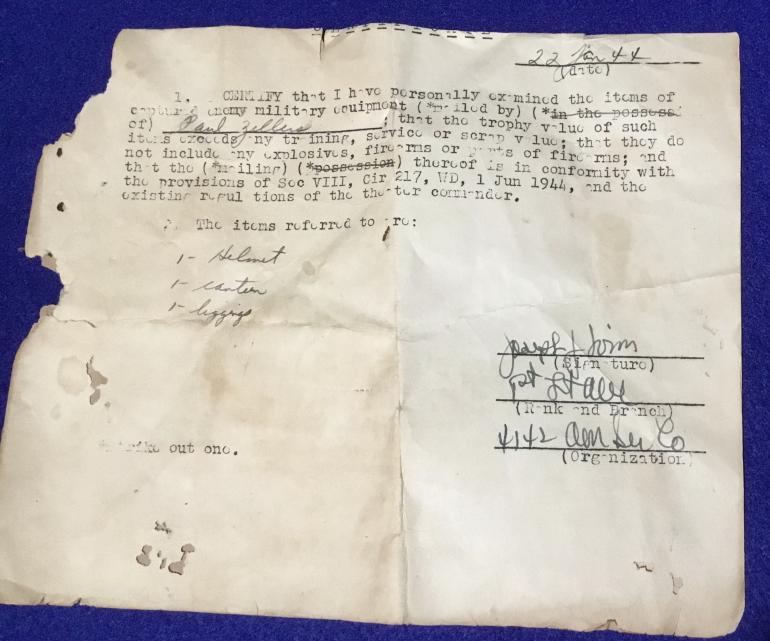 CERTIFICATE
22 Jan 44
(date)
1. CERTIFY that I have personally examined the items of
captured enemy military equipment (*mailed by) (*in the possess
of) Paul Zellers; that the trophy value of such
items exceeds any training, service or scrap value; that they do
not include any explosives, firearms or parts of firearms; and
that the (*mailing) (*possession) thereof is in conformity with
the provisions of Sec VIII, Cir 217, WD, 1 Jun 1944, and the
existing regulations of the theater commander.
2. The items referred to are:
1- Helmet
1- canteen
1- leggings
Joseph J
(Signature)
1st Lt
(Rank and Branch)
4142 Co
(Organization)
*Strike out one.